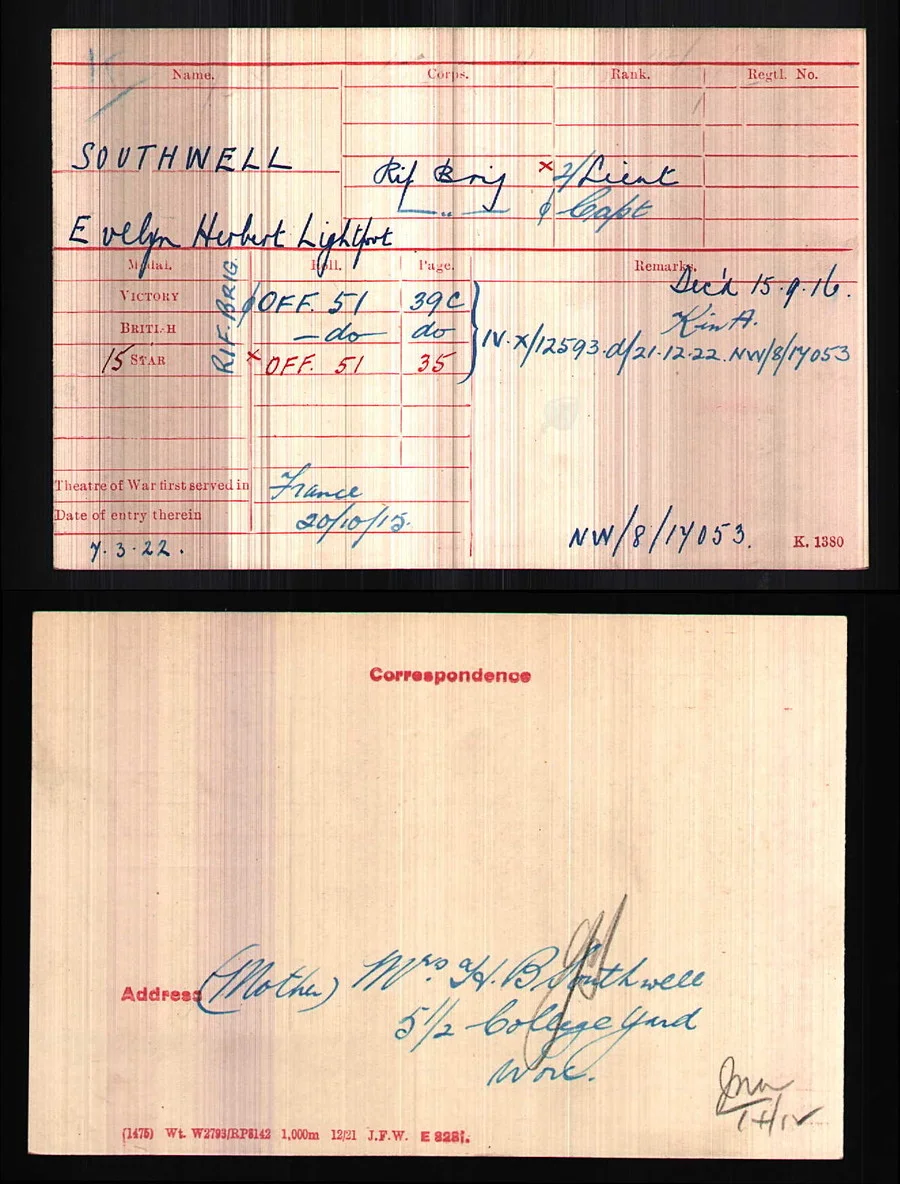 Name. Corps. Rank. Regtl. No.
SOUTHWELL
Rif Brig × 2/Lieut
" ϕ Capt
Evelyn Herbert Lightfoot
Medal. Roll. Page. Remarks.
RIF. BRIG.
VICTORY ϕ OFF. 51 39C
Dec'd 15.9.16.
BRITISH – do – do
K in A.
15 STAR × OFF. 51 35
IV. X/12593.d/21.12.22. NW/8/17053
Theatre of War first served in France
Date of entry therein 20/10/15.
7.3.22. NW/8/17053. K. 1380
Correspondence
Address (Mother) Mrs H. B Southwell
5½ College Yard
Worc.
(1475) Wt. W2793/RP8142 1,000m 12/21 J.F.W. E 828/.